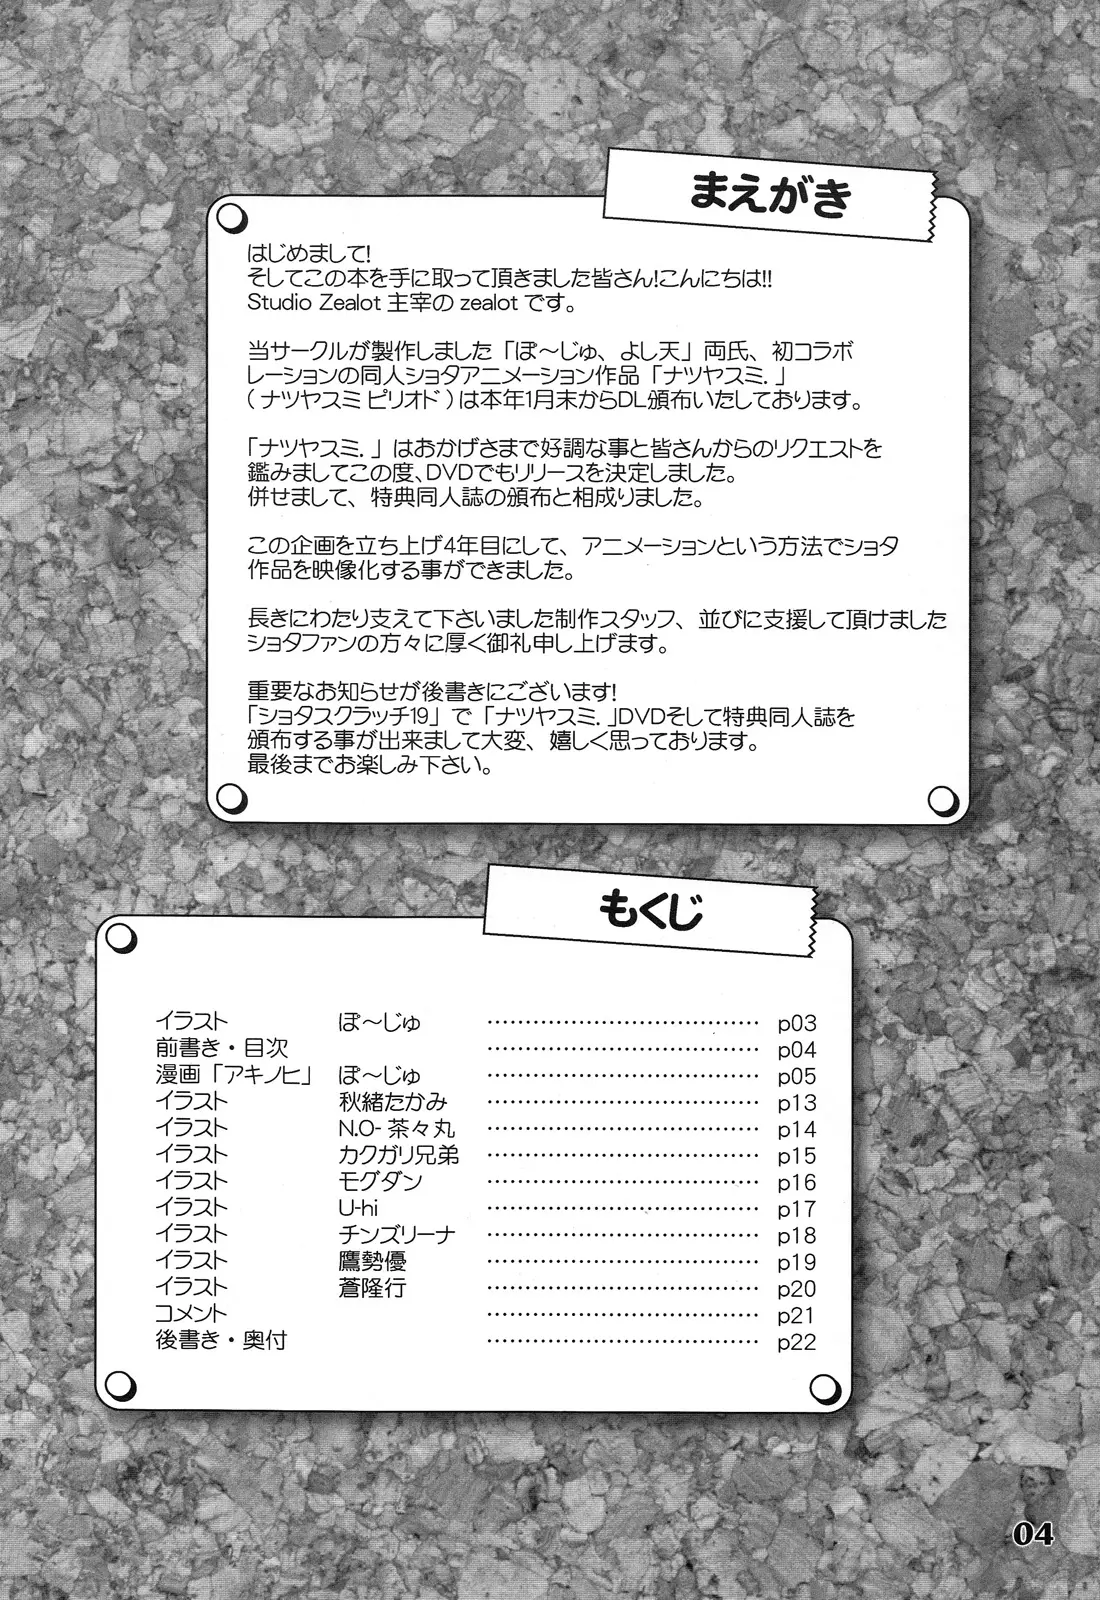 まえがき
はじめまして!
そしてこの本を手に取って頂きました皆さん!こんにちは!!
Studio Zealot 主宰の zealot です。
当サークルが製作しました「ぽ〜じゅ、よし天」両氏、初コラボ
レーションの同人ショタアニメーション作品「ナツヤスミ.」
(ナツヤスミ ピリオド)は本年1月末からDL頒布いたしております。
「ナツヤスミ.」はおかげさまで好調な事と皆さんからのリクエストを
鑑みましてこの度、DVDでもリリースを決定しました。
併せまして、特典同人誌の頒布と相成りました。
この企画を立ち上げ4年目にして、アニメーションという方法でショタ
作品を映像化する事ができました。
長きにわたり支えて下さいました制作スタッフ、並びに支援して頂けました
ショタファンの方々に厚く御礼申し上げます。
重要なお知らせが後書きにございます!
「ショタスクラッチ19」で「ナツヤスミ.」DVDそして特典同人誌を
頒布する事が出来まして大変、嬉しく思っております。
最後までお楽しみ下さい。
もくじ
イラスト ぽ〜じゅ ………………………… p03
前書き・目次 ………………………… p04
漫画「アキノヒ」 ぽ〜じゅ ………………………… p05
イラスト 秋緒たかみ ………………………… p13
イラスト N.O-茶々丸 ………………………… p14
イラスト カクガリ兄弟 ………………………… p15
イラスト モグダン ………………………… p16
イラスト U-hi ………………………… p17
イラスト チンズリーナ ………………………… p18
イラスト 鷹勢優 ………………………… p19
イラスト 蒼隆行 ………………………… p20
コメント ………………………… p21
後書き・奥付 ………………………… p22
04